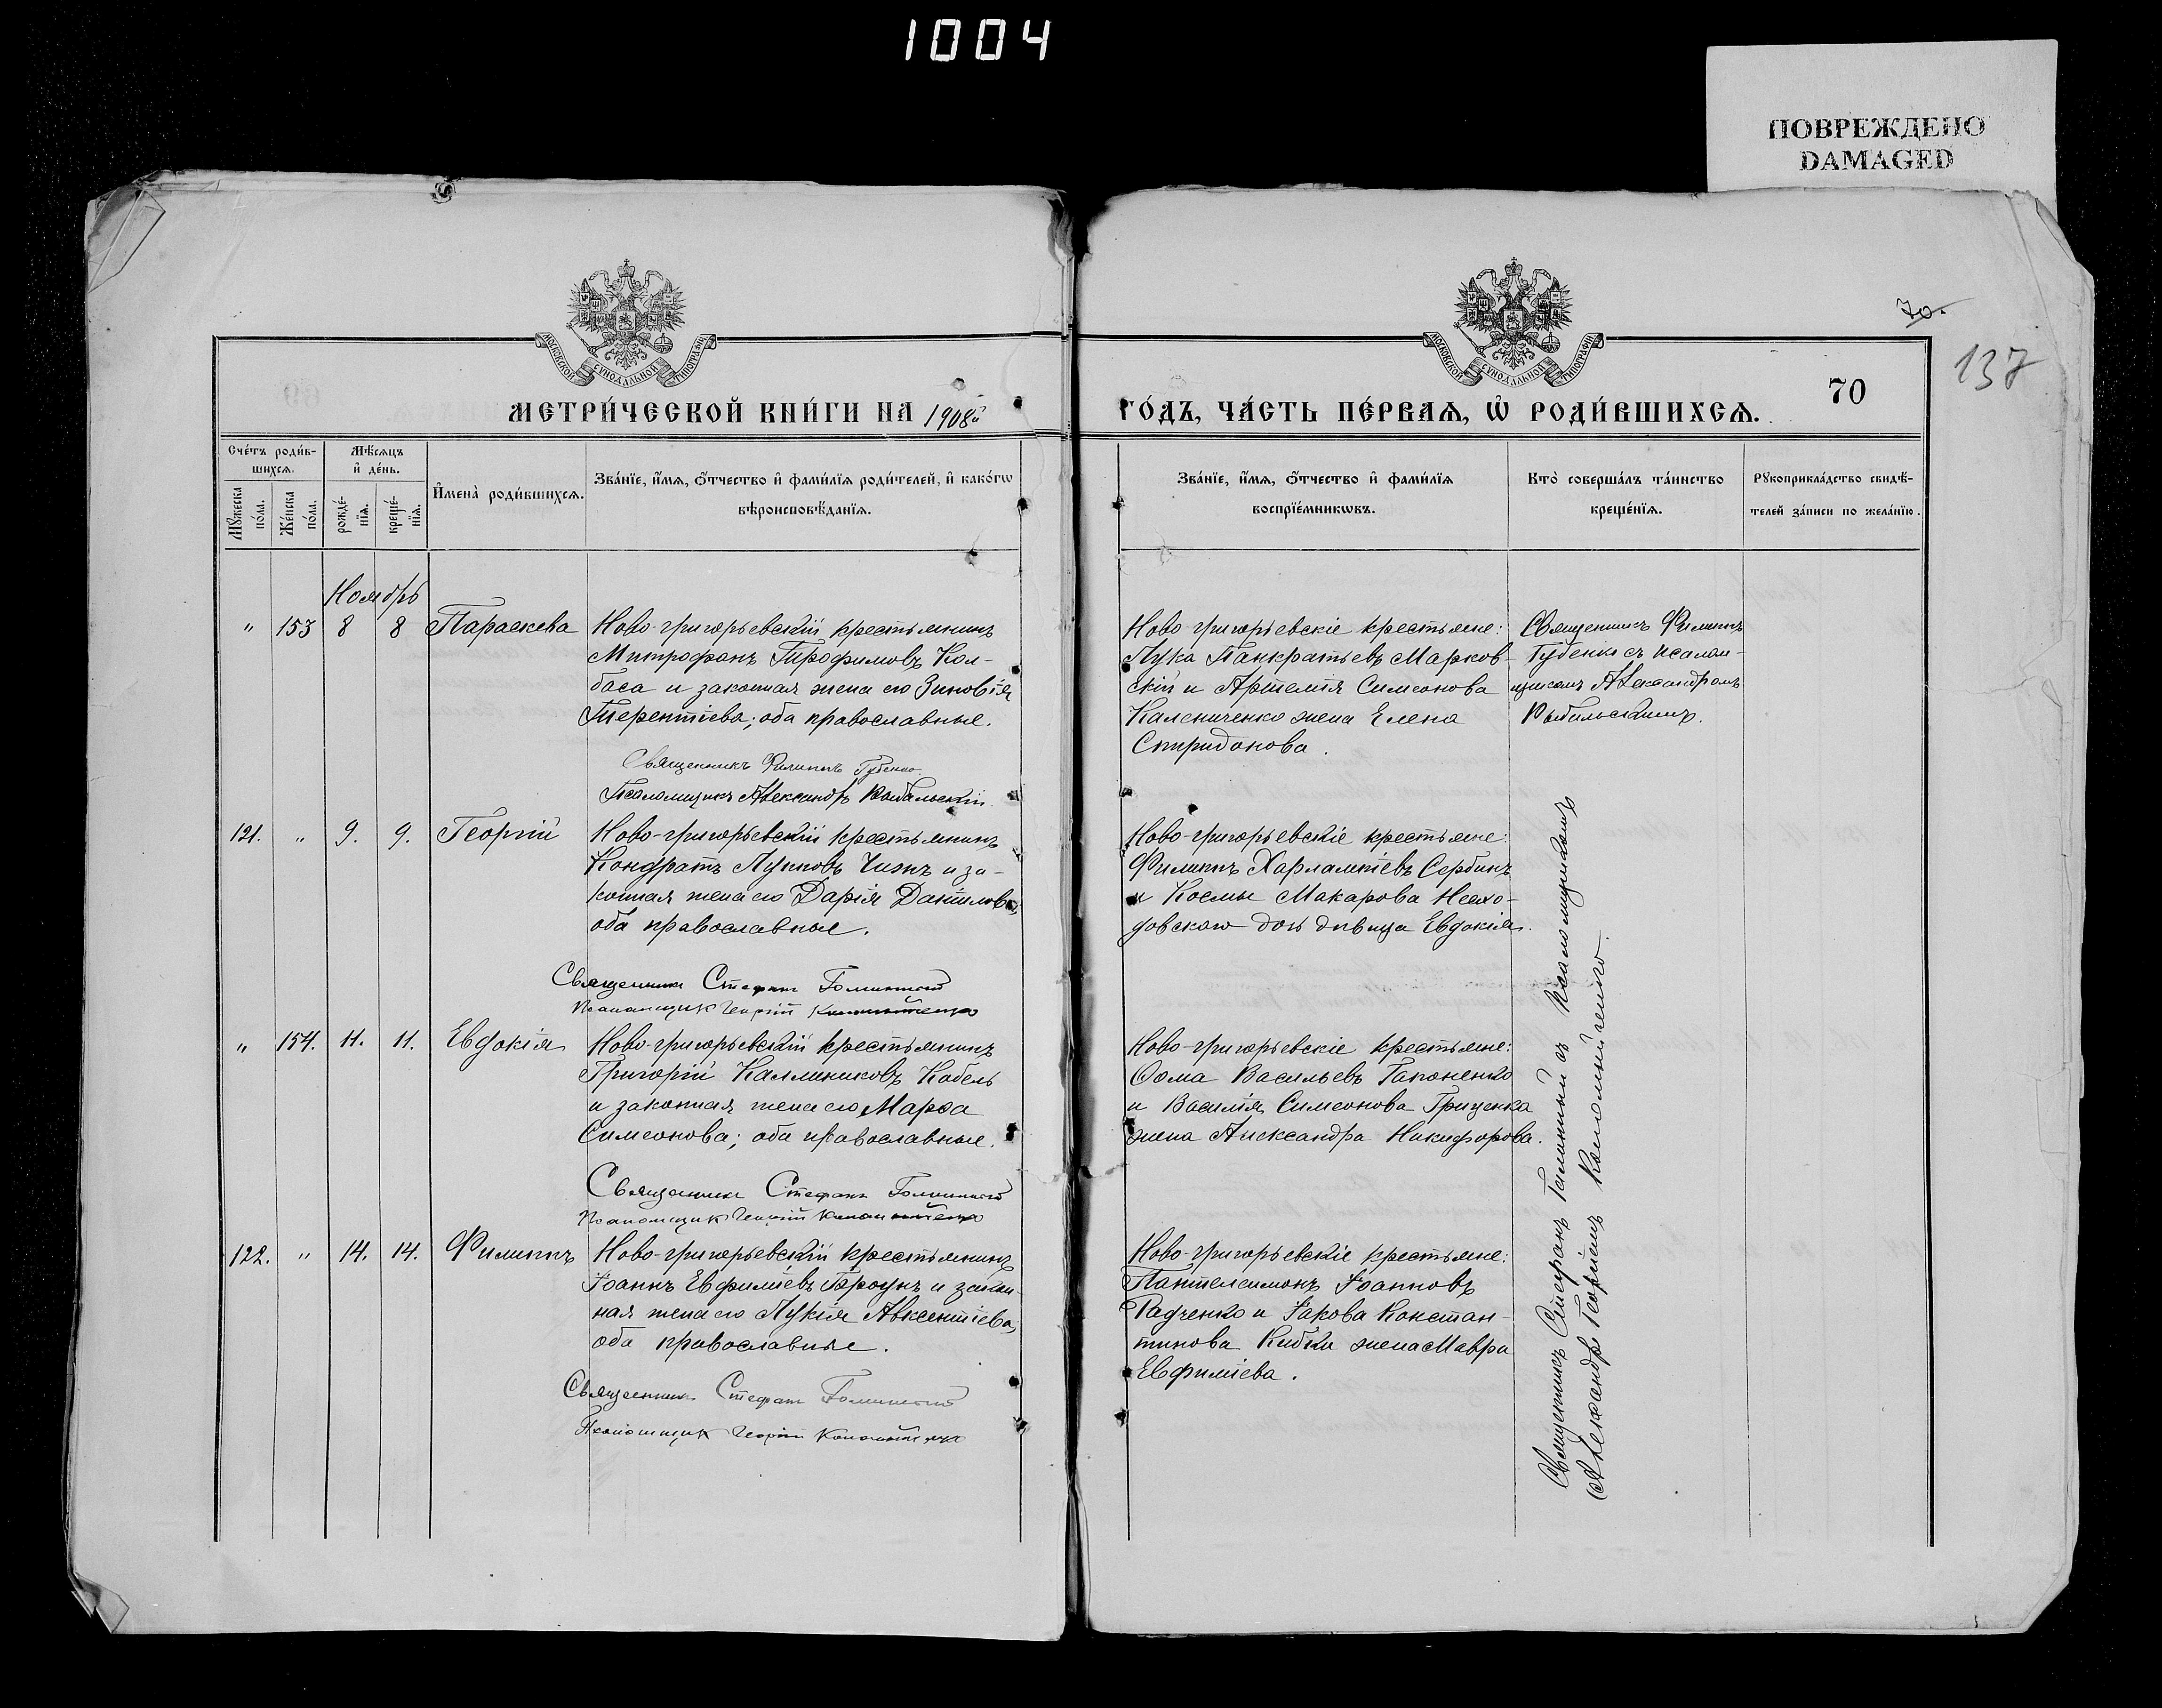 1004
ПОВРЕЖДЕНО
DAMAGED
МОСКОВСКОЙ СУНОДАЛЬНОЙ ТИПОГРАФІИ
МОСКОВСКОЙ СУНОДАЛЬНОЙ ТИПОГРАФІИ
70
137
70
МЕТРИ́ЧЕСКОЙ КНИ́ГИ НА 1908й
ГО́ДЪ, ЧА́СТЬ ПЕ́РВАѦ, Ѡ҆ РОДИ́ВШИХСѦ.
Сче́тъ роди́в-
шихсѧ.
Мꙋ́жеска
по́ла.
Же́нска
по́ла.
Мѣ́сѧцъ
и҆ де́нь.
рожде́-
нїѧ.
креще́-
нїѧ.
И҆мена̀ роди́вшихсѧ.
Зва́нїе, и҆́мѧ, ѻ҆́тчество и҆ фами́лїѧ роди́телей, и҆ како́гѡ
вѣроисповѣ́данїѧ.
Зва́нїе, и҆́мѧ, ѻ҆́тчество и҆ фами́лїѧ
воспрїе́мникѡвъ.
Кто̀ соверша́лъ та́инство
креще́нїѧ.
Рꙋкоприкла́дство свидѣ́-
телей за́писи по жела́нїю.
Ноябрь
" 153 8 8 Параскева
Ново-григорьевскій крестьянинъ
Митрофанъ Трофимовъ Кол-
баса и законная жена его Зиновія
Терентіева; оба православные.
Священникъ Филиппъ Губенко
Псаломщикъ Александръ Рыбальскій
Ново григорьевскіе крестьяне:
Лука Панкратьевъ Марков-
скій и Артемія Симеонова
Калениченко жена Елена
Спиридонова.
Священникъ Филиппъ
Губенко съ псалом-
щикомъ Александромъ
Рыбальскимъ.
121. " 9. 9. Георгій
Ново-григорьевскій крестьянинъ
Кондратъ Лукиновъ Чижъ и за-
конная жена его Дарія Даніилова;
оба православные.
Священникъ Стефанъ
Псаломщикъ Георгій
Ново-григорьевскіе крестьяне:
Филиппъ Харлампіевъ Сербинъ
и Космы Макарова
довскаго дочь дѣвица Евдокія.
" 154. 11. 11. Евдокія
Ново-григорьевскій крестьянинъ
Григорій Каллиниковъ Кобель
и законная жена его Марѳа
Симеонова; оба православные.
Священникъ Стефанъ
Псаломщикъ Георгій
Ново-григорьевскіе крестьяне:
Ѳома Васильевъ Гапоненко
и Василія Симеонова Гриценка
жена Александра Никифорова.
122. " 14. 14. Филиппъ
Ново-григорьевскій крестьянинъ
Іоаннъ Евфиміевъ и закон-
ная жена его Лукія Авксентіева,
оба православные.
Священникъ Стефанъ
Псаломщикъ Георгій
Ново-григорьевскіе крестьяне:
Пантелеимонъ Іоанновъ
Радченко и Іакова Констан-
тинова Кибки жена Мавра
Евфиміева.
Священникъ Стефанъ съ псаломщикомъ
Георгіемъ